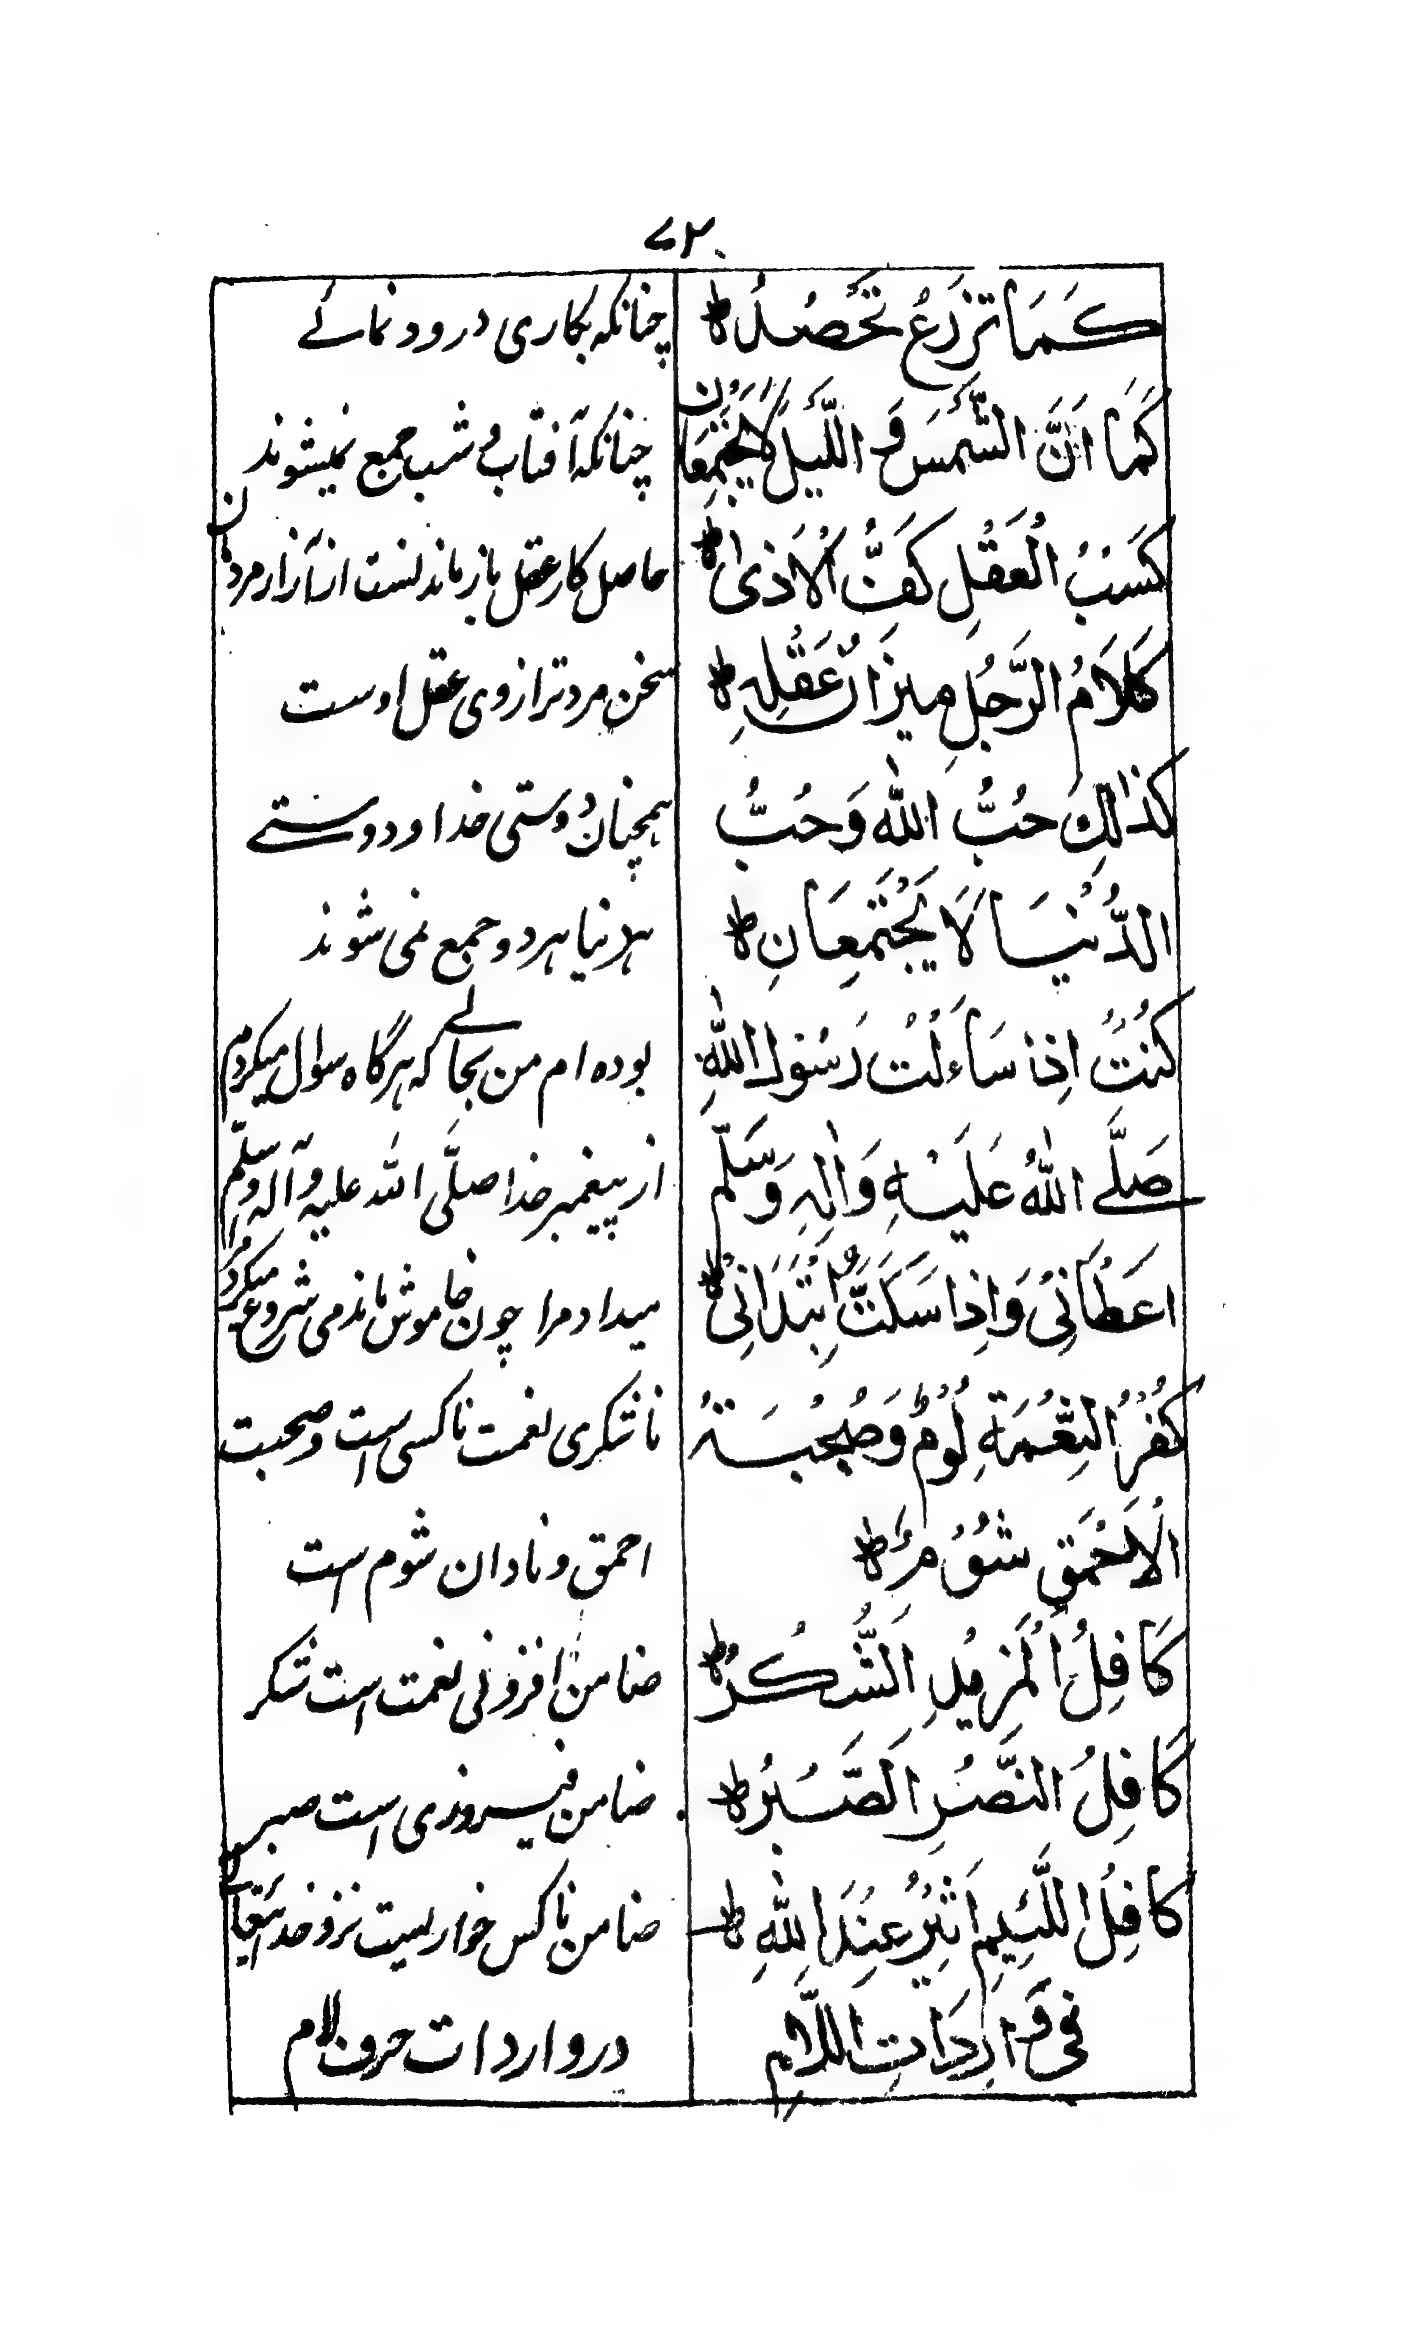 ۷۲
كَمَا تَزْرَعُ تَحْصُدُ ط چنانکه بکاری درود نمائے
كَمَا اَنَّ الشَّمْسَ وَ اللَّيْلَ لَا يَجْتَمِعَانِ چنانکه آفتاب و شب جمع نمیشوند
كَسْبُ الْعَقْلِ كَفُّ الْاَذٰى ط حاصل کار عقل باز ماندنست از آزار مردمان
كَلَامُ الرَّجُلِ مِيزَانُ عَقْلِهِ ط سخن مرد ترازوی عقل اوست
كَذٰلِكَ حُبُّ اللّٰهِ وَحُبُّ همچنان دوستی خدا و دوستے
الدُّنْيَا لَا يَجْتَمِعَانِ ط دنیا هردو جمع نمی شوند
كُنْتُ اِذَا سَاَءلْتُ رَسُولَ اللّٰهِ بوده ام من بحالے که هرگاه سوال میکردم
صَلَّے اللّٰهُ عَلَيْهِ وَاٰلِهٖ وَسَلَّم از پیغمبر خدا صلَّی الله علیه و آله و سلّم
اعَطَانِیْ وَاِذَا سَكَتُّ ابْتَدَانِیْ ط میداد مرا چون خاموش ماندمی شروع میکرد مرا
كُفْرُ النِّعْمَةِ لُومٌ وَصُحْبَةُ ناشکری نعمت ناکسی است و صحبت
الْاَحْمَقِ شُوُمٌ ط احمق و نادان شوم است
كَافِلُ الْمَزِيْدِ الشُّكْرُ ط ضامن افزونی نعمت است شکر
كَافِلُ النَّصْرِ الصَّبْرُ ط ضامن فیروزی است صبر
كَافِلُ اللَّئِيمِ اَثِيْرٌ عِنْدَ اللّٰهِ ط ضامن ناکس خواریست نزد خدایتعالی
فِي وَارِدَاتِ اللَّامِ در واردات حرف لام